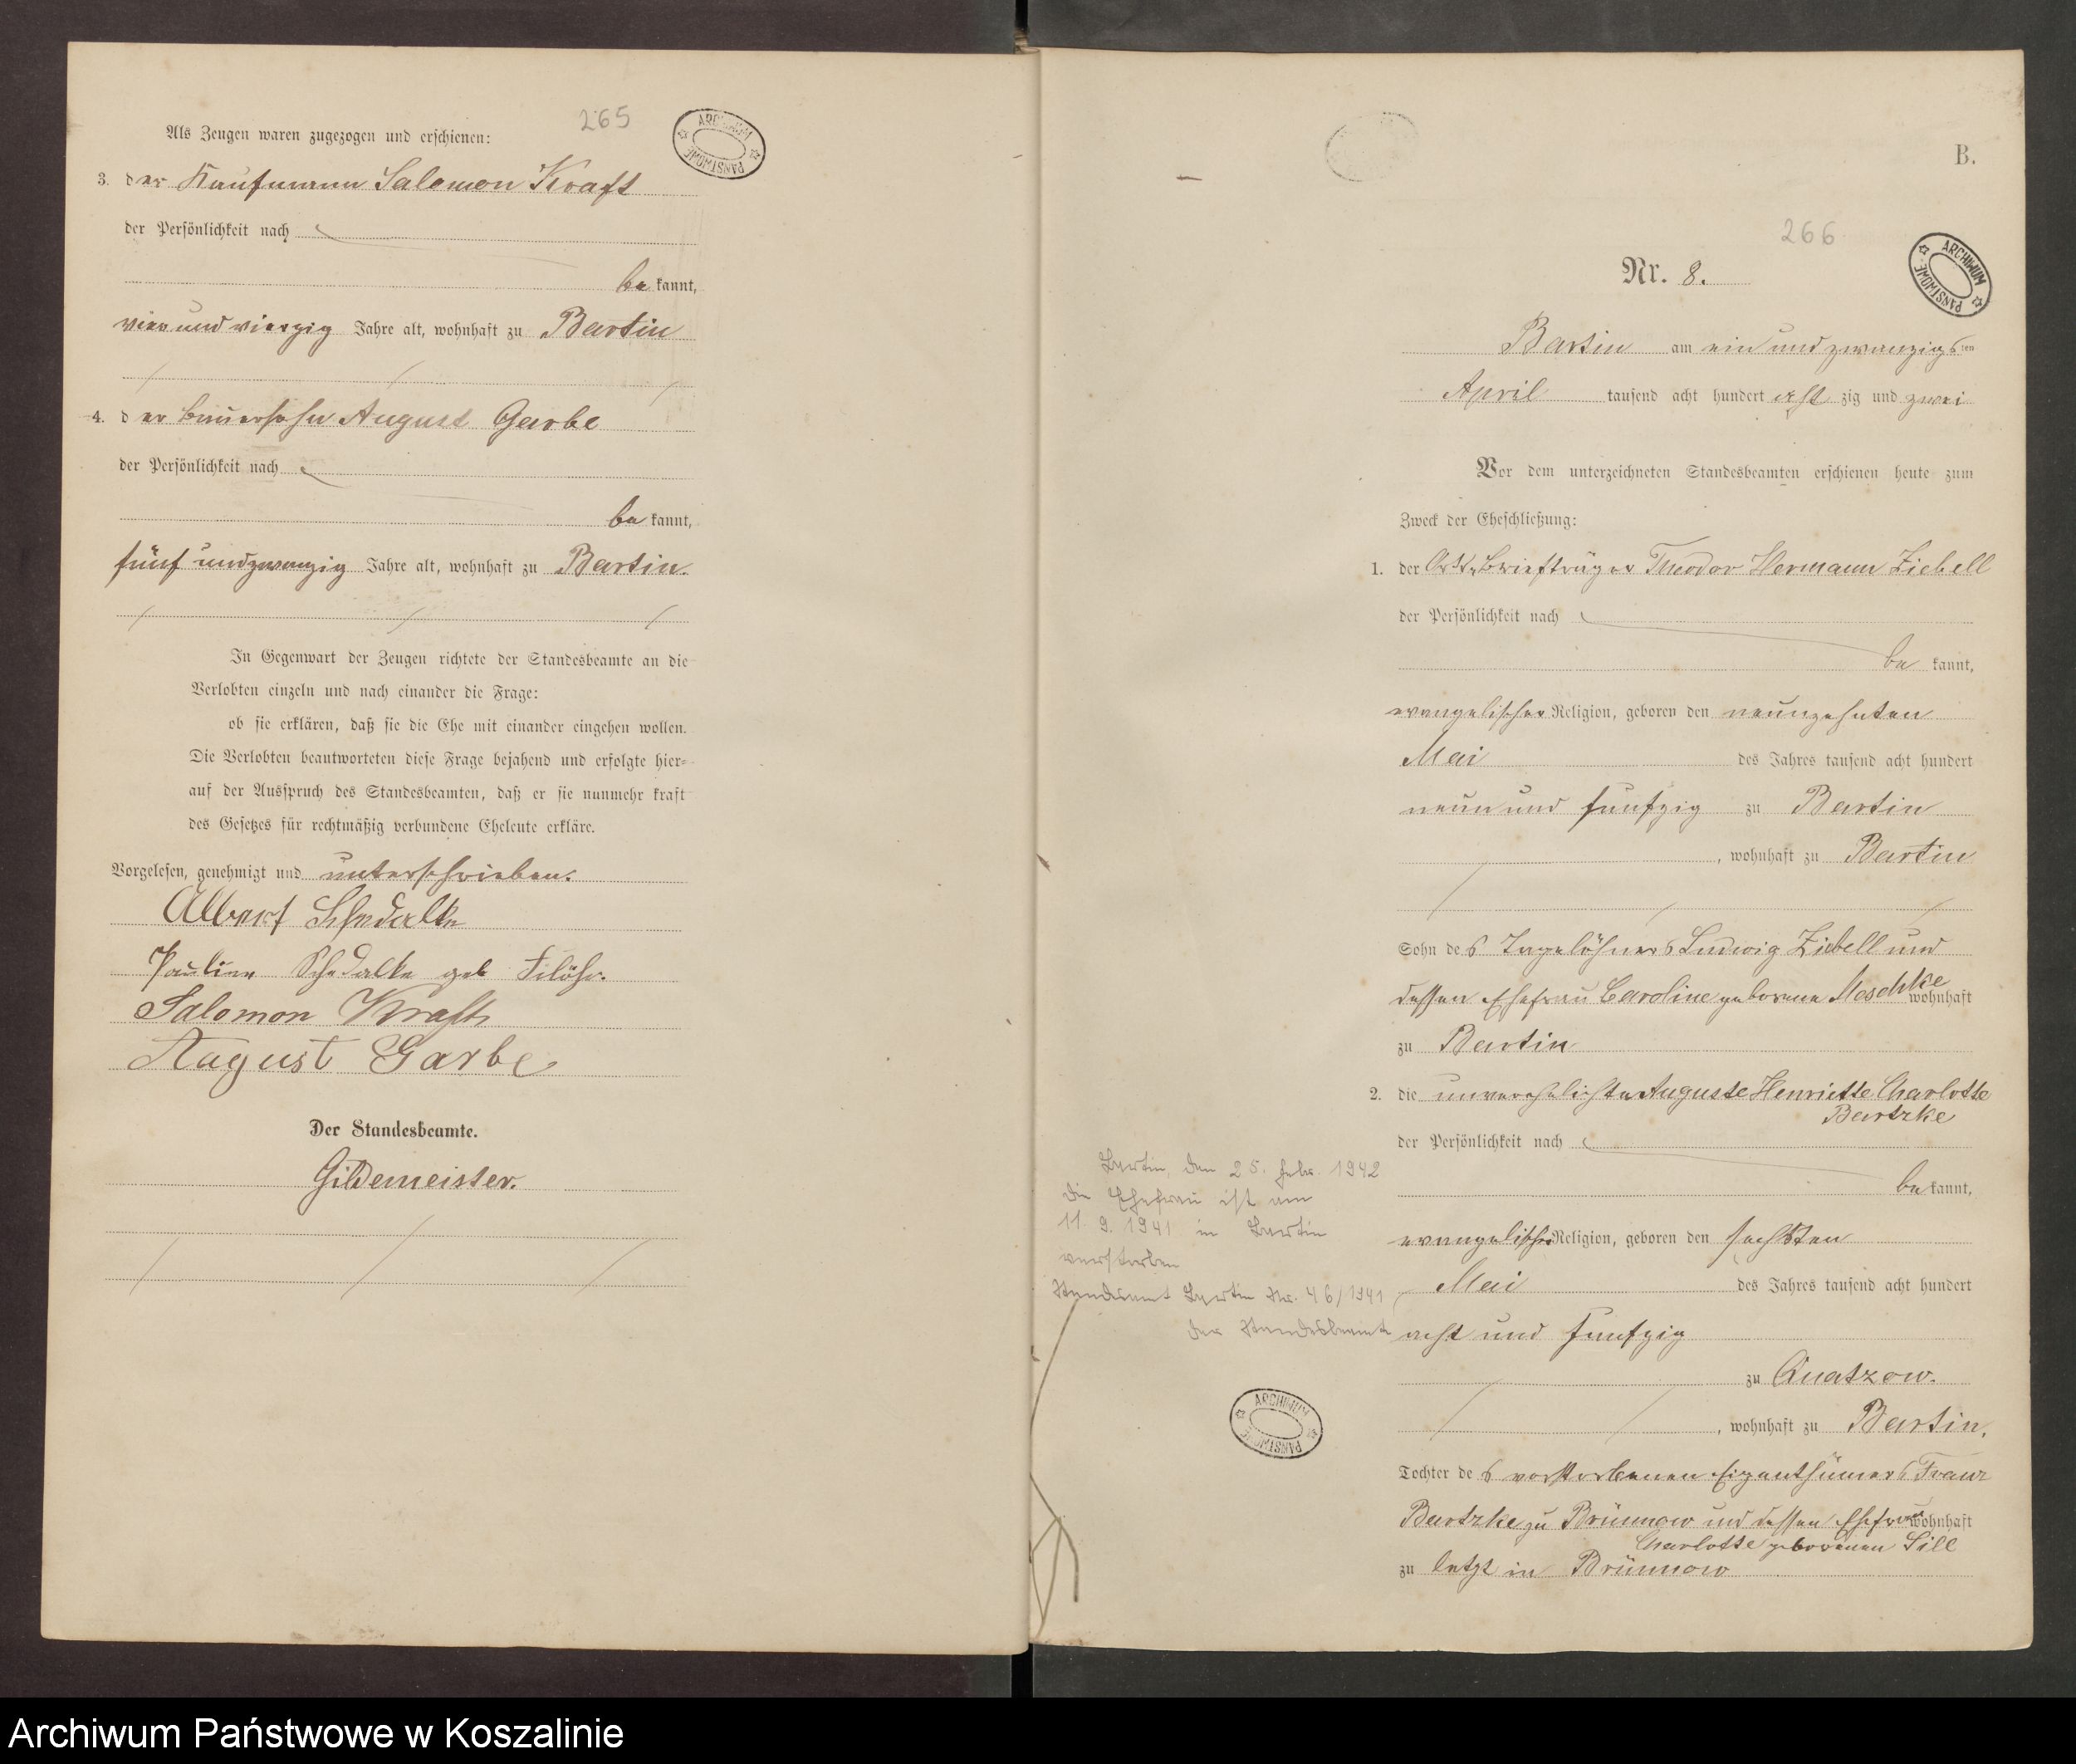 265
ARCHIWUM PAŃSTWOWE
Als Zeugen waren zugezogen und erschienen:
3. der Kaufmann Salomon Kraft
der Persönlichkeit nach
be kannt,
vier und vierzig Jahre alt, wohnhaft zu Bartin
4. der Bauersohn August Garbe
der Persönlichkeit nach
be kannt,
fünf und zwanzig Jahre alt, wohnhaft zu Bartin.
In Gegenwart der Zeugen richtete der Standesbeamte an die
Verlobten einzeln und nach einander die Frage:
ob sie erklären, daß sie die Ehe mit einander eingehen wollen.
Die Verlobten beantworteten diese Frage bejahend und erfolgte hier-
auf der Ausspruch des Standesbeamten, daß er sie nunmehr kraft
des Gesetzes für rechtmäßig verbundene Eheleute erkläre.
Vorgelesen, genehmigt und unterschrieben.
Albert Schedalke
Pauline Schedalke geb
Salomon Kraft
August Garbe
Der Standesbeamte.
Gildemeister.
B.
266
ARCHIWUM PAŃSTWOWE
Nr. 8.
Bartin am ein und zwanzigsten
April tausend acht hundert acht zig und zwei
Vor dem unterzeichneten Standesbeamten erschienen heute zum
Zweck der Eheschließung:
1. der Briefträger Theodor Hermann Ziebell
der Persönlichkeit nach
be kannt,
evangelischer Religion, geboren den neunzehnten
Mai des Jahres tausend acht hundert
neun und fünfzig zu Bartin
, wohnhaft zu Bartin
Sohn des Tagelöhners Ludwig Ziebell und
dessen Ehefrau Caroline geborene Meschke wohnhaft
zu Bartin
2. die unverehelichte Auguste Henriette Charlotte
Bartzke
der Persönlichkeit nach
be kannt,
evangelischer Religion, geboren den sechsten
Mai des Jahres tausend acht hundert
acht und fünfzig
zu Quatzow.
, wohnhaft zu Bartin.
Tochter des verstorbenen Eigenthümers Franz
Bartzke zu Brünnow und dessen Ehefrau wohnhaft
Charlotte geborenen Sill
zu letzt in Brünnow
Bartin, den 25. Febr. 1942
Die Ehefrau ist am
11. 9. 1941 in Bartin
verstorben
Standesamt Bartin Nr. 46/1941
Der Standesbeamte
ARCHIWUM PAŃSTWOWE
Archiwum Państwowe w Koszalinie